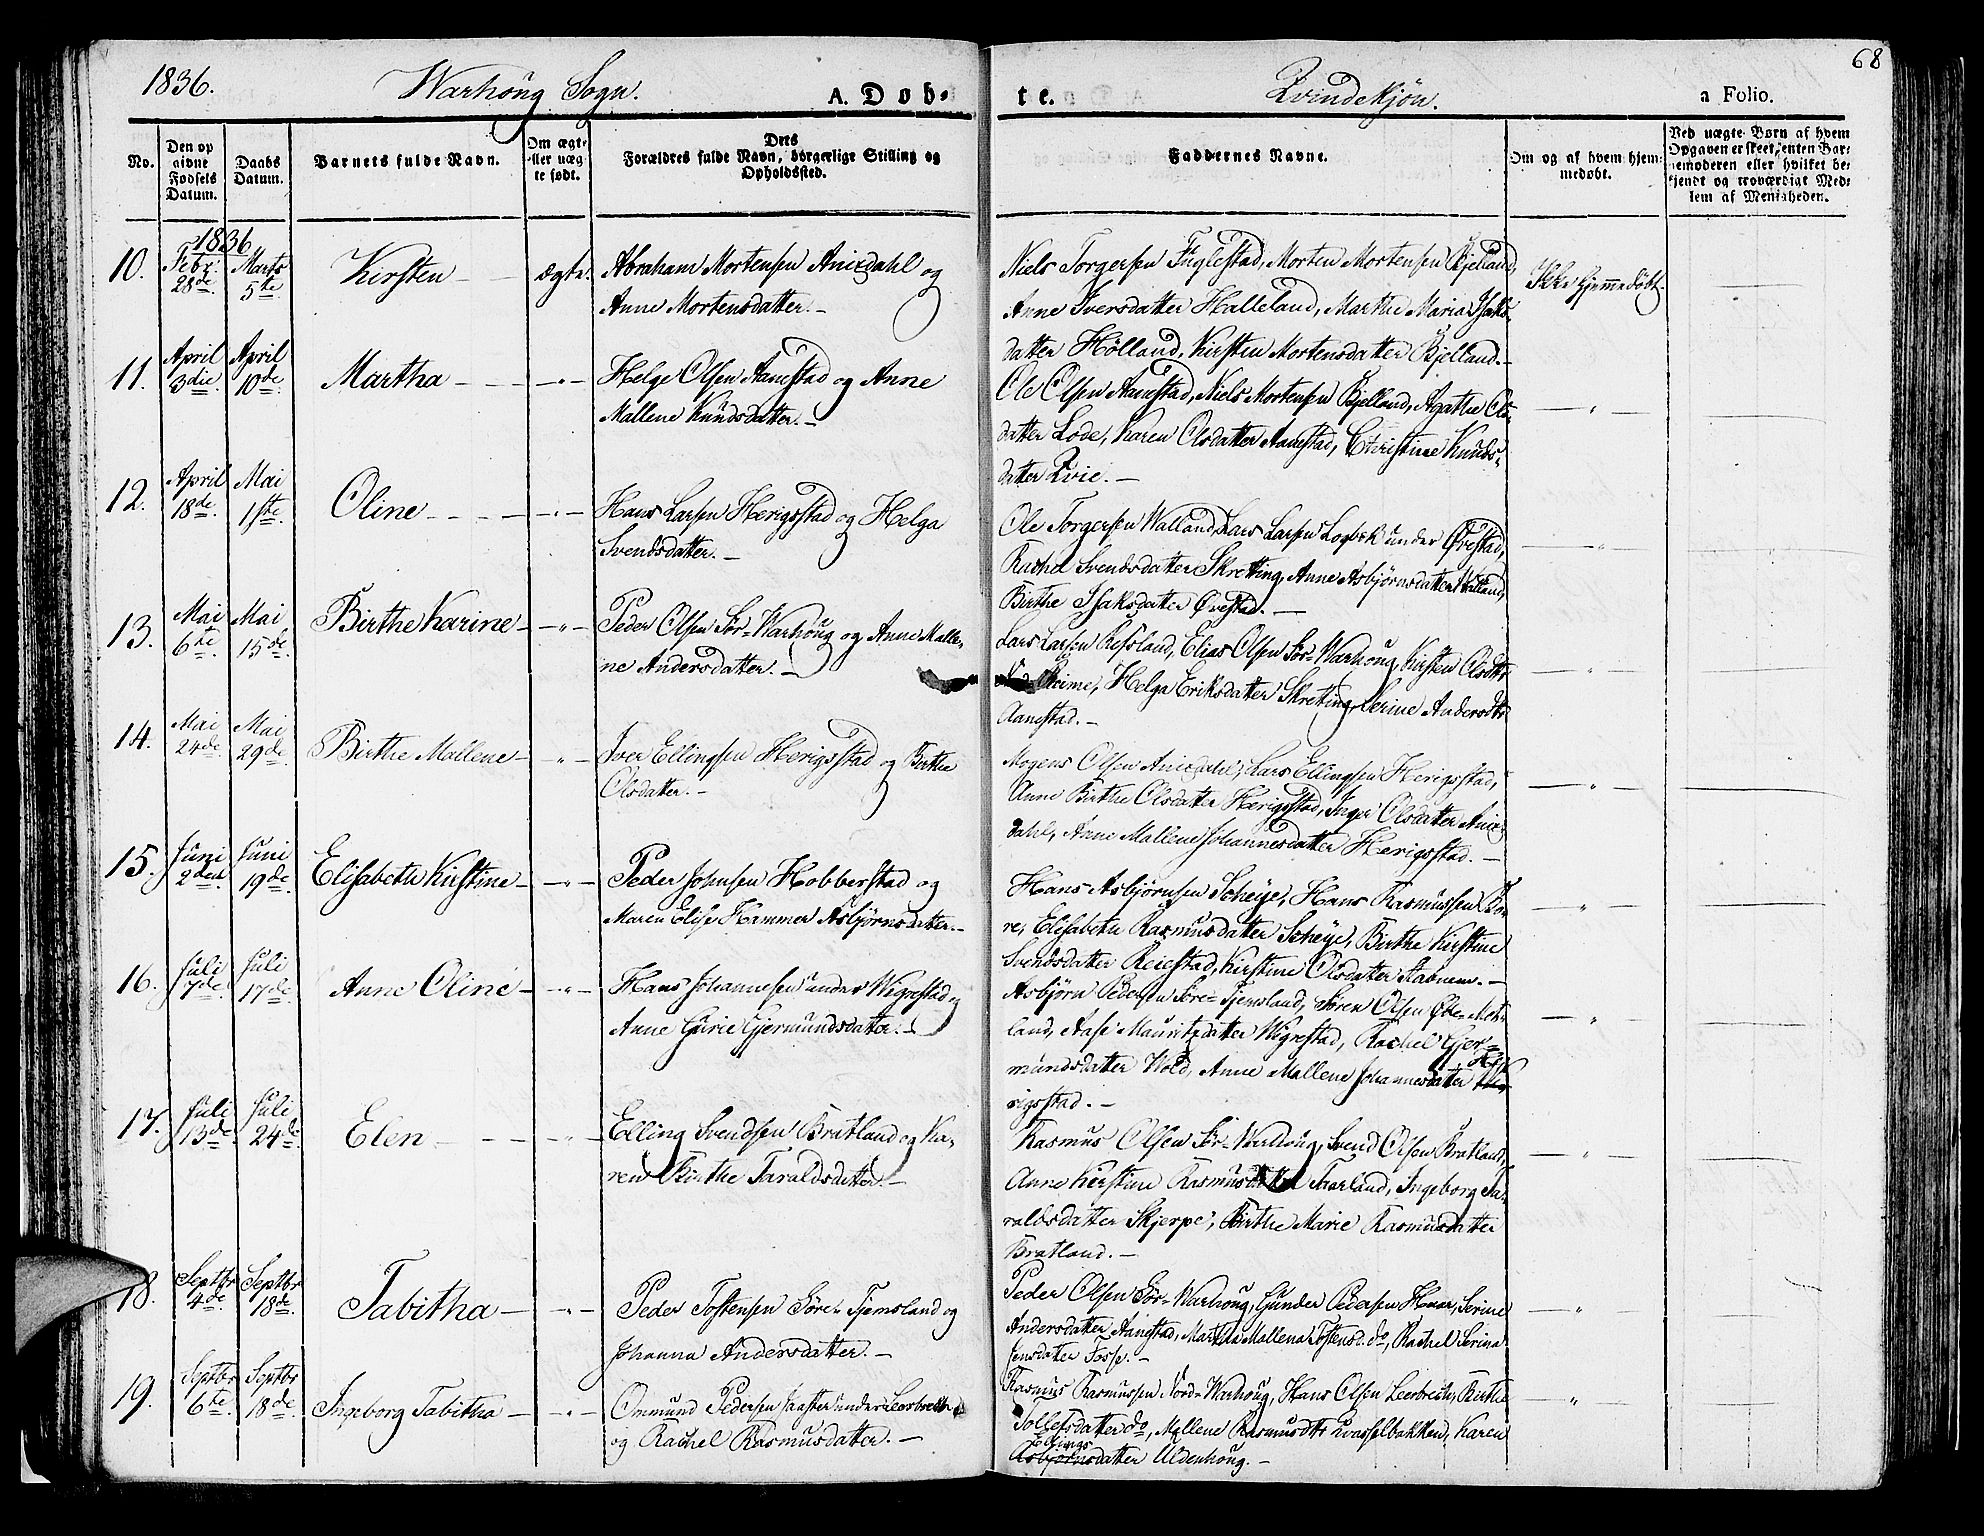 1836. Warhoug Sogn. A. Døb-
te. Qvindekjøn. a Folio. 68
No. Den opgivne Fødsels Datum. Daabs Datum. Barnets fulde Navn. Om ægte eller uægte født. Dets Forældres fulde Navn, borgerlige Stilling og Opholdssted. Faddernes Navne. Om og af hvem hjemmedøbt. Ved uægte Børn af hvem Opgaven er skeet, enten Barnemoderen eller hvilket bekjendt og troværdigt Medlem af Menigheden.
1836
10. Febr. 28de. Marts 5te. Kirsten — ægte. Abraham Mortensen Anixdahl og
Anne Mortensdatter. —
Niels Torgersen Fuglestad, Morten Mortensen Bjelland,
Anne Iversdatter Halleland, Marthe Maria Isaks-
datter Hølland, Kirsten Mortensdatter Bjelland. —
Ikke hjemmedøbt.
11. April 3die. April 10de. Martha — — " — Helge Olsen Aanestad og Anne
Mallene Knudsdatter. —
Ole Olsen Aanestad, Niels Mortensen Bjelland, Agathe Ols-
datter Lode, Karen Olsdatter Aanestad, Christine Knuds-
datter Qvie. —
— " —
12. April 18de. Mai 1ste. Oline — — " — Hans Larsen Herigstad og Helga
Svendsdatter. —
Ole Torgersen Walland, Lars Larsen Logbek under Øvestad,
Rachel Svendsdatter Skretting, Anne Asbjørnsdatter Walland,
Birthe Isaksdatter Øvestad. —
— " —
13. Mai 6te. Mai 15de. Birthe Karine — — " — Peder Olsen Sør-Warhoug og Anne Malle-
ne Andersdatter. —
Lars Larsen Refsland, Elias Olsen Sør-Warhoug, Kirsten Olsdttr
Reime, Helga Eriksdatter Skretting, Serine Andersdttr
Aanestad. —
— " —
14. Mai 24de. Mai 29de. Birthe Mallene — — " — Iver Ellingsen Herigstad og Birthe
Olsdatter. —
Mogens Olsen Anixdahl, Lars Ellingsen Herigstad,
Anne Birthe Olsdatter Herigstad, Inger Olsdatter Anix-
dahl, Anne Mallene Johannesdatter Herigstad. —
— " —
15. Juni 2den. Juni 19de. Elisabeth Kirstine — — " — Peder Johnsen Hobberstad og
Maren Elise Hammer Asbjørnsdatter. —
Hans Asbjørnsen Scheye, Hans Rasmussen Bo-
re, Elisabeth Rasmusdatter Scheye, Birthe Kirstine
Svendsdatter Reiestad, Kirstine Olsdatter Stabnem. —
— " —
16. Juli 7de. Juli 17de. Anne Oline — — " — Hans Johannesen under Wigrestad og
Anne Gurie Gjermundsdatter. —
Asbjørn Pedersen Søre-Tjemsland, Søren Olsen Øvre-Mot-
land, Aase Mauritzdatter Wigrestad, Rachel Gjer-
mundsdatter Wold, Anne Mallene Johannesdatter He-
rigstad. —
— " —
17. Juli 13de. Juli 24de. Elen — — " — Elling Svendsen Bratland og Ka-
ren Birthe Taraldsdatter. —
Rasmus Olsen Sør-Warhoug, Svend Olsen Bratland,
Anne Kirstine Rasmusdatter Taarland, Ingeborg Ta-
raldsdatter Skjerpe, Birthe Marie Rasmusdatter
Bratland. —
— " —
18. Septbr 4de. Septbr 18de. Tabitha — — " — Peder Tostensen Søre-Tjemsland og
Johanna Andersdatter. —
Peder Olsen Sør-Warhoug, Gunder Pedersen Haar, Serine
Andersdatter Aanestad, Martha Mallena Tostensd. do, Rachel Serina
Jensdatter Fosse. —
— "
19. Septbr 6te. Septbr 18de. Ingeborg Tabitha — — " — Onmund Pedersen under Leerbrekke
og Rachel Rasmusdatter. —
Rasmus Rasmussen Nord-Warhoug, Hans Olsen Leerbrekke, Birthe
Tollefsdatter do, Mallene Rasmusdttr Qvasselbakken, Karen
Ellings
Asbjørnsdatter Uldenhoug. —
"